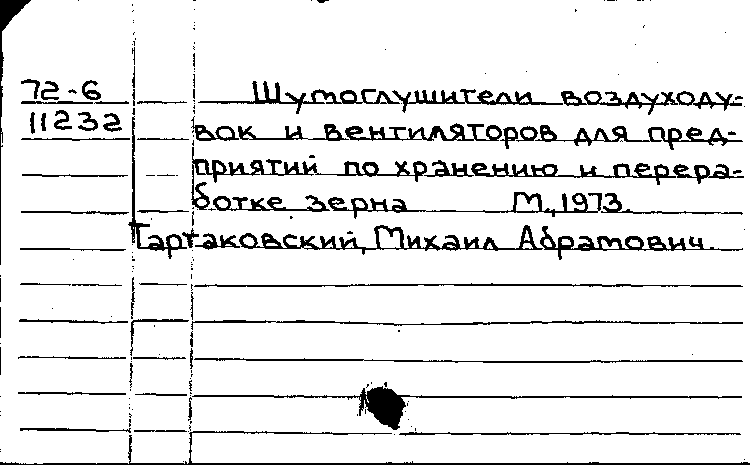 72-6 Шумоглушители воздуходу-
11232 вок и вентиляторов для пред-
приятий по хранению и перера-
ботке зерна М., 1973.
Тартаковский, Михаил Абрамович.